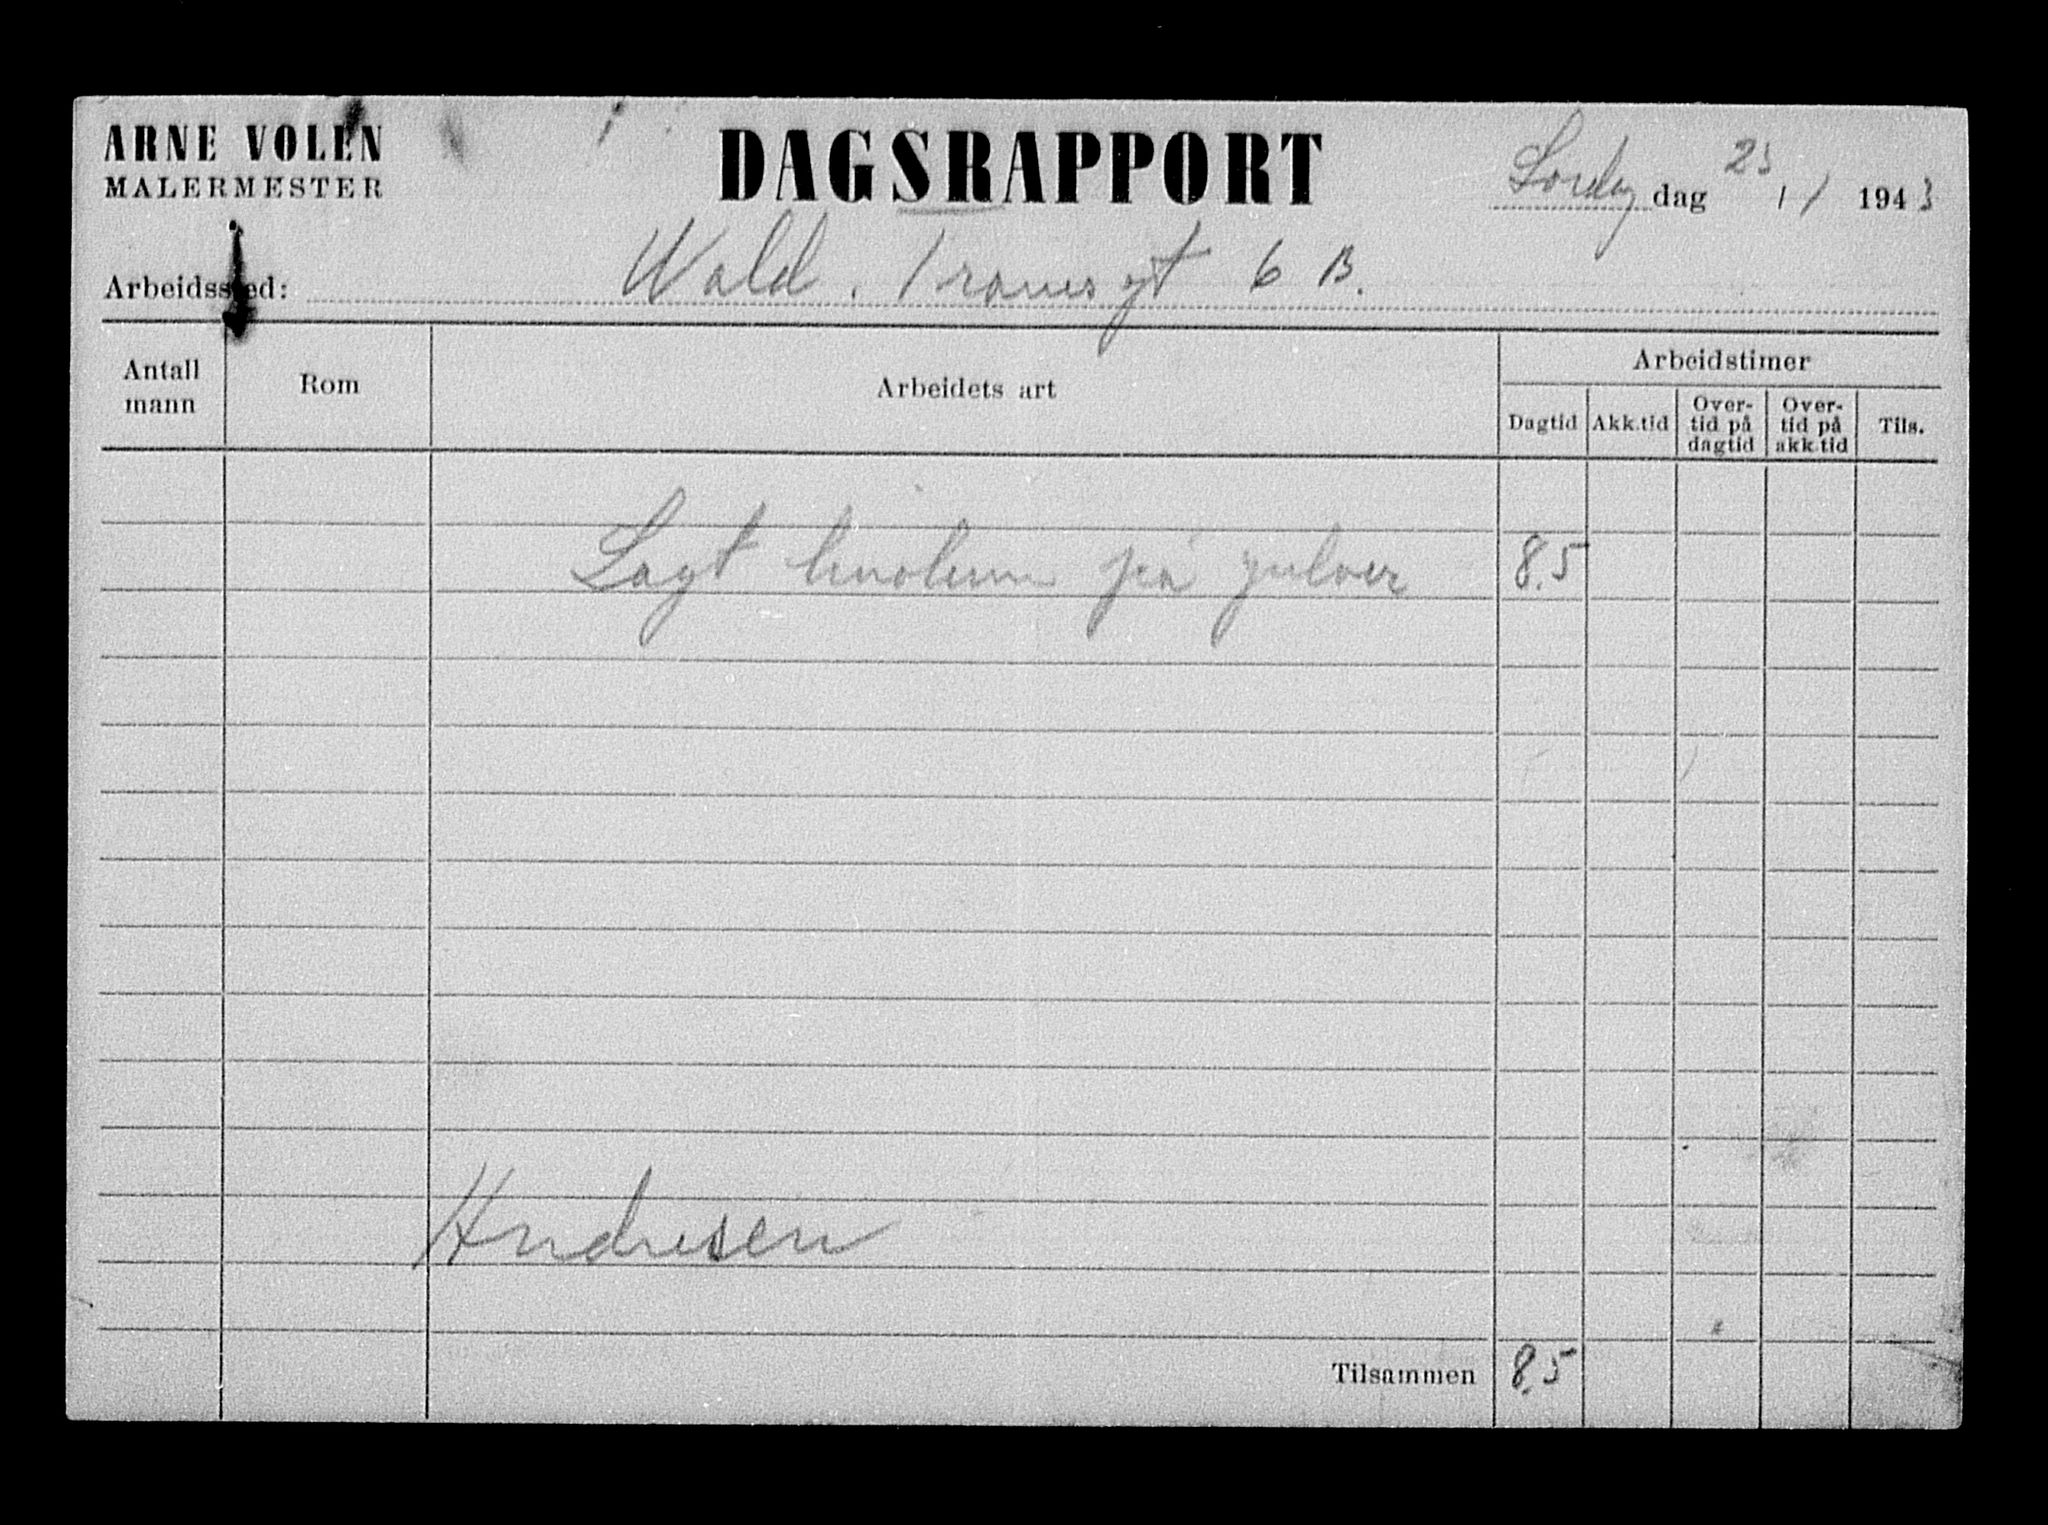 ARNE VOLEN
MALERMESTER
DAGSRAPPORT
Lørdag dag 23 / 1 1943
Arbeidssted: Wald. Tromsgt 6 B.
Antall mann
Rom
Arbeidets art
Arbeidstimer
Dagtid
Akk.tid
Over-
tid på
dagtid
Over-
tid på
akk.tid
Tils.
Lagt linoleum på gulver 8.5
Andresen
Tilsammen 8.5